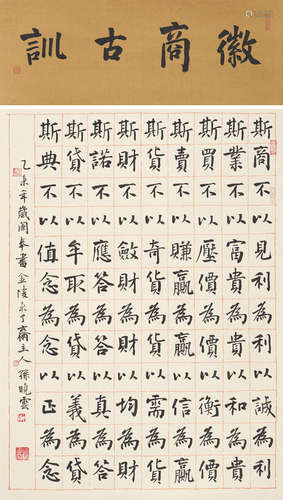 徽商古訓
斯商不以見利為利以誠為利
斯業不以富貴為貴以和為貴
斯買不以壓價為價以衡為價
斯賣不以賺贏為贏以信為贏
斯貨不以奇貨為貨以需為貨
斯財不以斂財為財以均為財
斯諾不以應答為答以真為答
斯貸不以牟取為貸以義為貸
斯典不以值念為念以正為念
乙未年歲闌奉書金陵求了齋主人孫曉雲